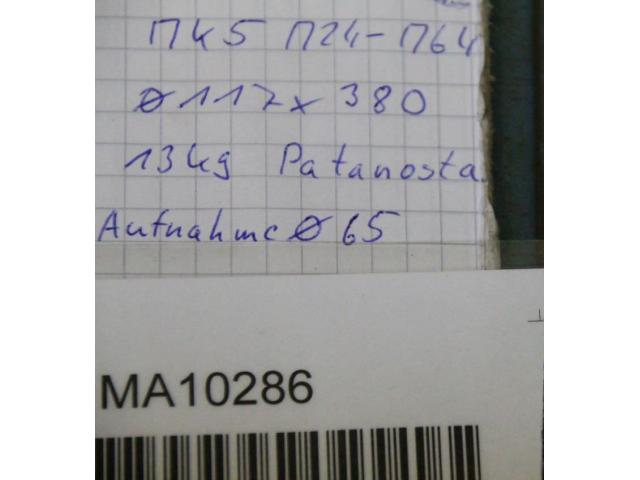 MK5 M24-M64
ø 117 x 380
13 kg Patanosta
Aufnahme ø 65
MA10286